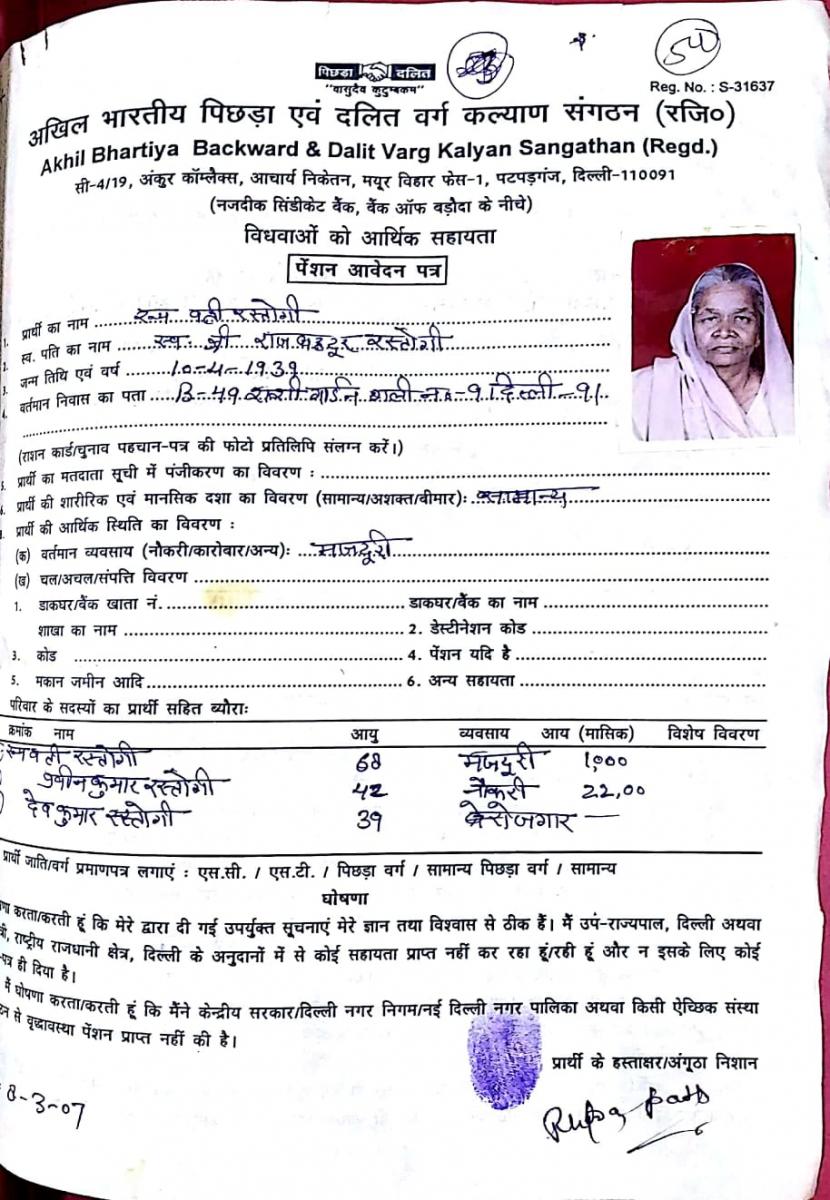 54
पिछड़ा दलित
"वासुदैव कुटुम्बकम"
Reg. No. : S-31637
अखिल भारतीय पिछड़ा एवं दलित वर्ग कल्याण संगठन (रजि०)
Akhil Bhartiya Backward & Dalit Varg Kalyan Sangathan (Regd.)
सी-4/19, अंकुर कॉम्लैक्स, आचार्य निकेतन, मयूर विहार फेस-1, पटपड़गंज, दिल्ली-110091
(नजदीक सिंडीकेट बैंक, बैंक ऑफ बड़ौदा के नीचे)
विधवाओं को आर्थिक सहायता
पेंशन आवेदन पत्र
1. प्रार्थी का नाम रस्तोगी
2. स्व. पति का नाम स्व. श्री राज बहादूर रस्तोगी
3. जन्म तिथि एवं वर्ष 10-4-1939
4. वर्तमान निवास का पता B-49 शशी गार्डन गली न० -91 दिल्ली -91
(राशन कार्ड/चुनाव पहचान-पत्र की फोटो प्रतिलिपि संलग्न करें।)
5. प्रार्थी का मतदाता सूची में पंजीकरण का विवरण :
6. प्रार्थी की शारीरिक एवं मानसिक दशा का विवरण (सामान्य/अशक्त/बीमार): सामान्य
प्रार्थी की आर्थिक स्थिति का विवरण :
(क) वर्तमान व्यवसाय (नौकरी/कारोबार/अन्य): माजदूरी
(ख) चल/अचल/संपत्ति विवरण
1. डाकघर/बैंक खाता नं. डाकघर/बैंक का नाम
शाखा का नाम 2. डेस्टीनेशन कोड
3. कोड 4. पेंशन यदि है
5. मकान जमीन आदि 6. अन्य सहायता
परिवार के सदस्यों का प्रार्थी सहित ब्यौराः
क्रमांक नाम आयु व्यवसाय आय (मासिक) विशेष विवरण
रस्तोगी 68 मजदूरी 1,000
प्रवीन कुमार रस्तोगी 42 नौकरी 22,00
देव कुमार रस्तोगी 39 बेरोजगार —
प्रार्थी जाति/वर्ग प्रमाणपत्र लगाएं : एस.सी. / एस.टी. / पिछड़ा वर्ग / सामान्य पिछड़ा वर्ग / सामान्य
घोषणा
करता/करती हूं कि मेरे द्वारा दी गई उपर्युक्त सूचनाएं मेरे ज्ञान तथा विश्वास से ठीक हैं। मैं उप-राज्यपाल, दिल्ली अथवा
राष्ट्रीय राजधानी क्षेत्र, दिल्ली के अनुदानों में से कोई सहायता प्राप्त नहीं कर रहा हूं/रही हूं और न इसके लिए कोई
पत्र ही दिया है।
मैं घोषणा करता/करती हूं कि मैंने केन्द्रीय सरकार/दिल्ली नगर निगम/नई दिल्ली नगर पालिका अथवा किसी ऐच्छिक संस्था
से वृद्धावस्था पेंशन प्राप्त नहीं की है।
प्रार्थी के हस्ताक्षर/अंगूठा निशान
8-3-07